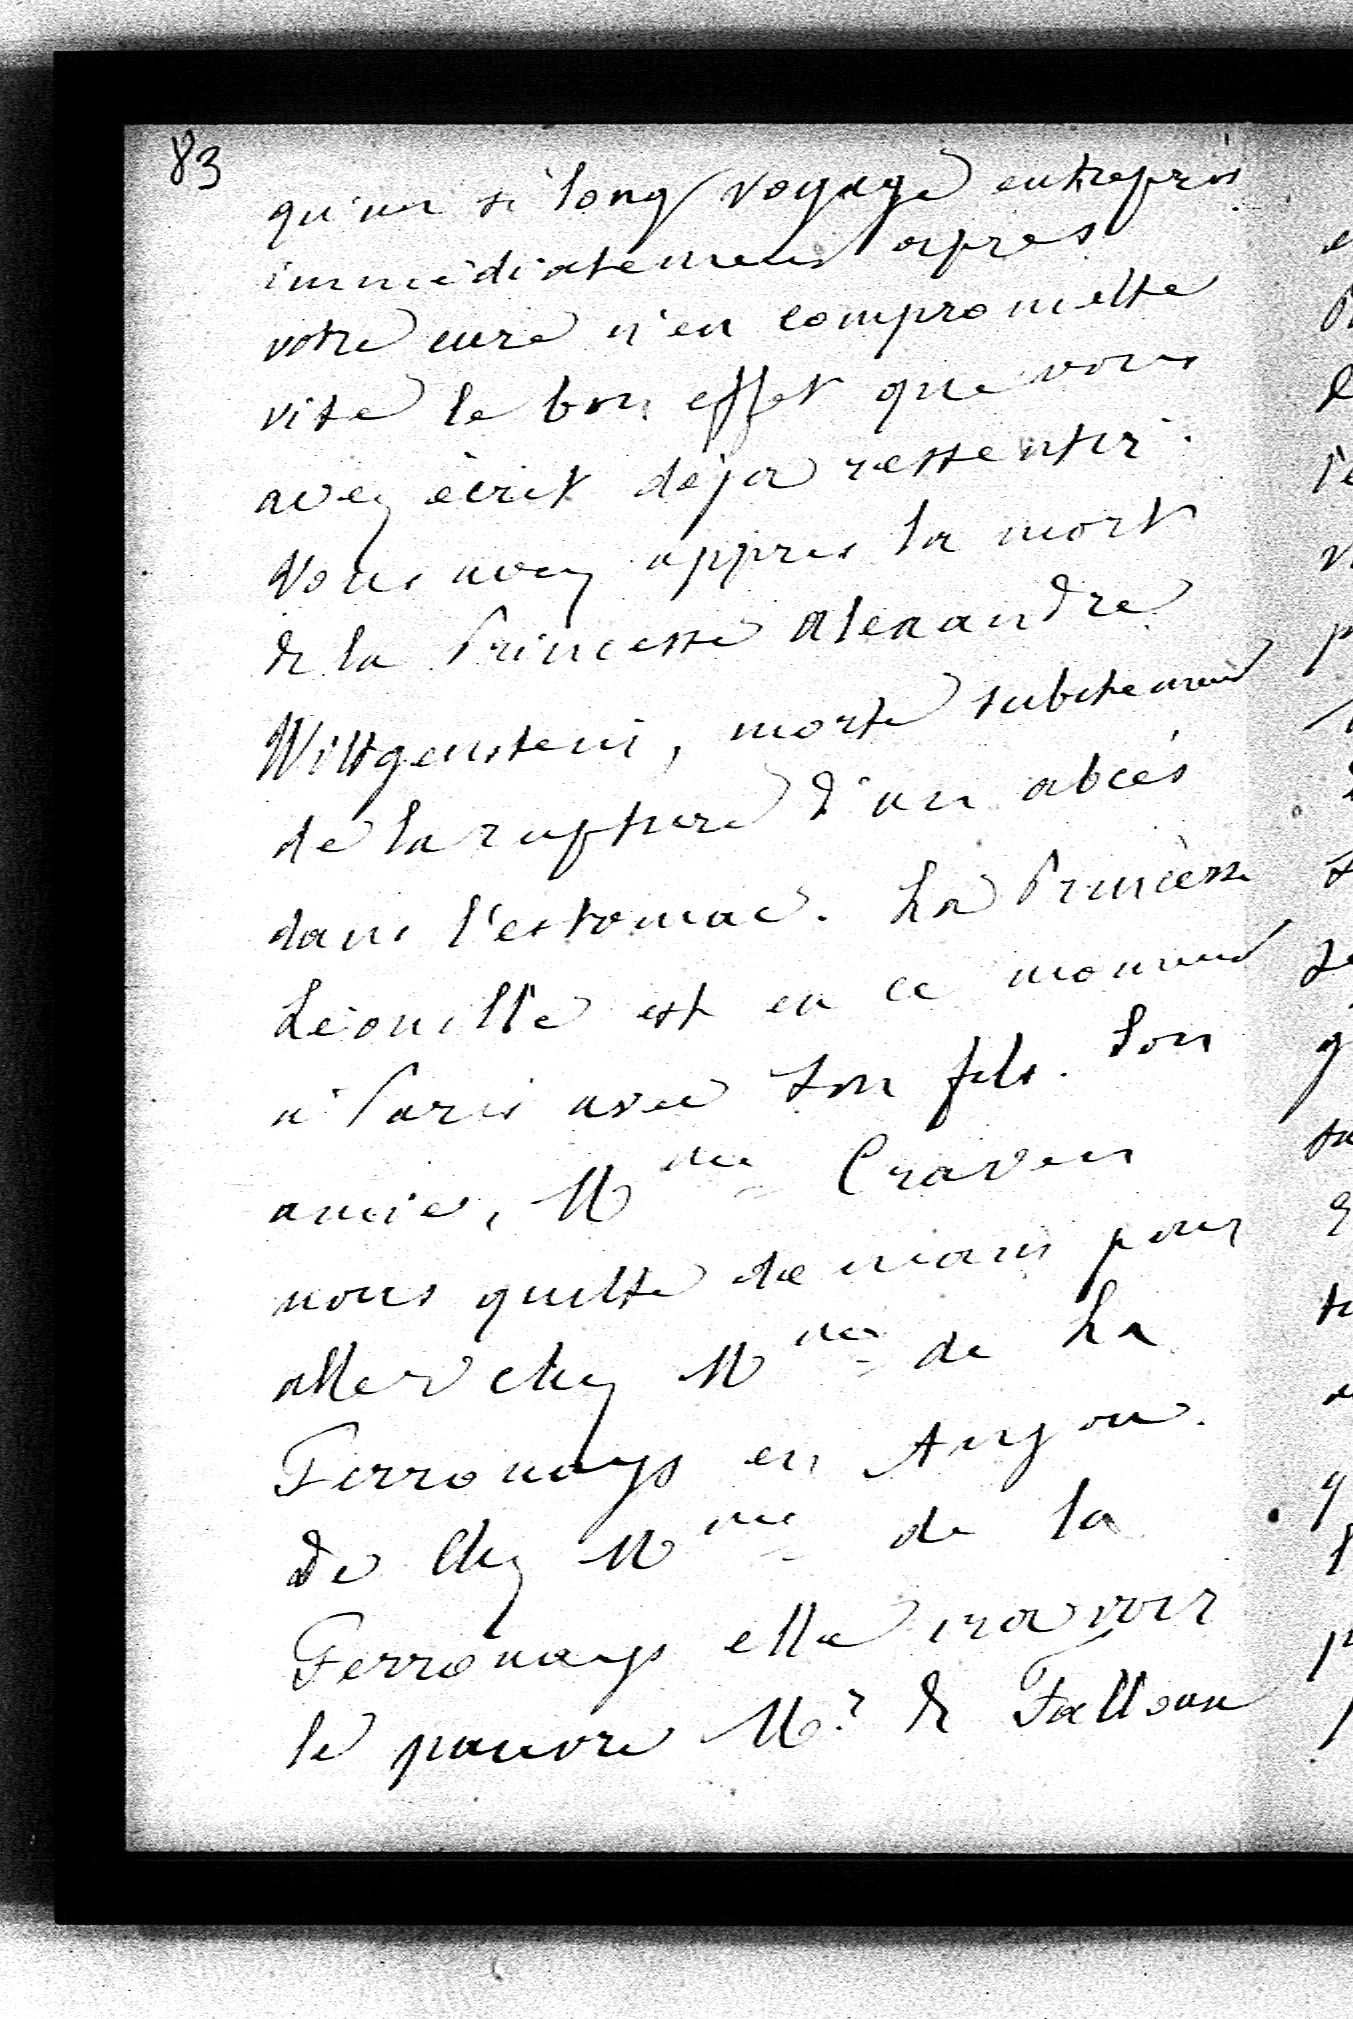 83
qu'un si long voyage entrepris
immédiatement après
votre cure n'en compromette
vite le bon effet que vous
avez écrit déja ressentir.
Vous avez appris la mort
de la Princesse Alexandre
Wittgenstein, morte subitement
de la rupture d'un abcés
dans l'estomac. La Princesse
Léonille est en ce moment
à Paris avec son fils. Son
amie, Mme Craven
nous quitte demain pour
aller chez Mme de La
Ferronays en Anjou.
De chez Mme de la
Ferronays elle ira voir
le pauvre Mr de Falloux